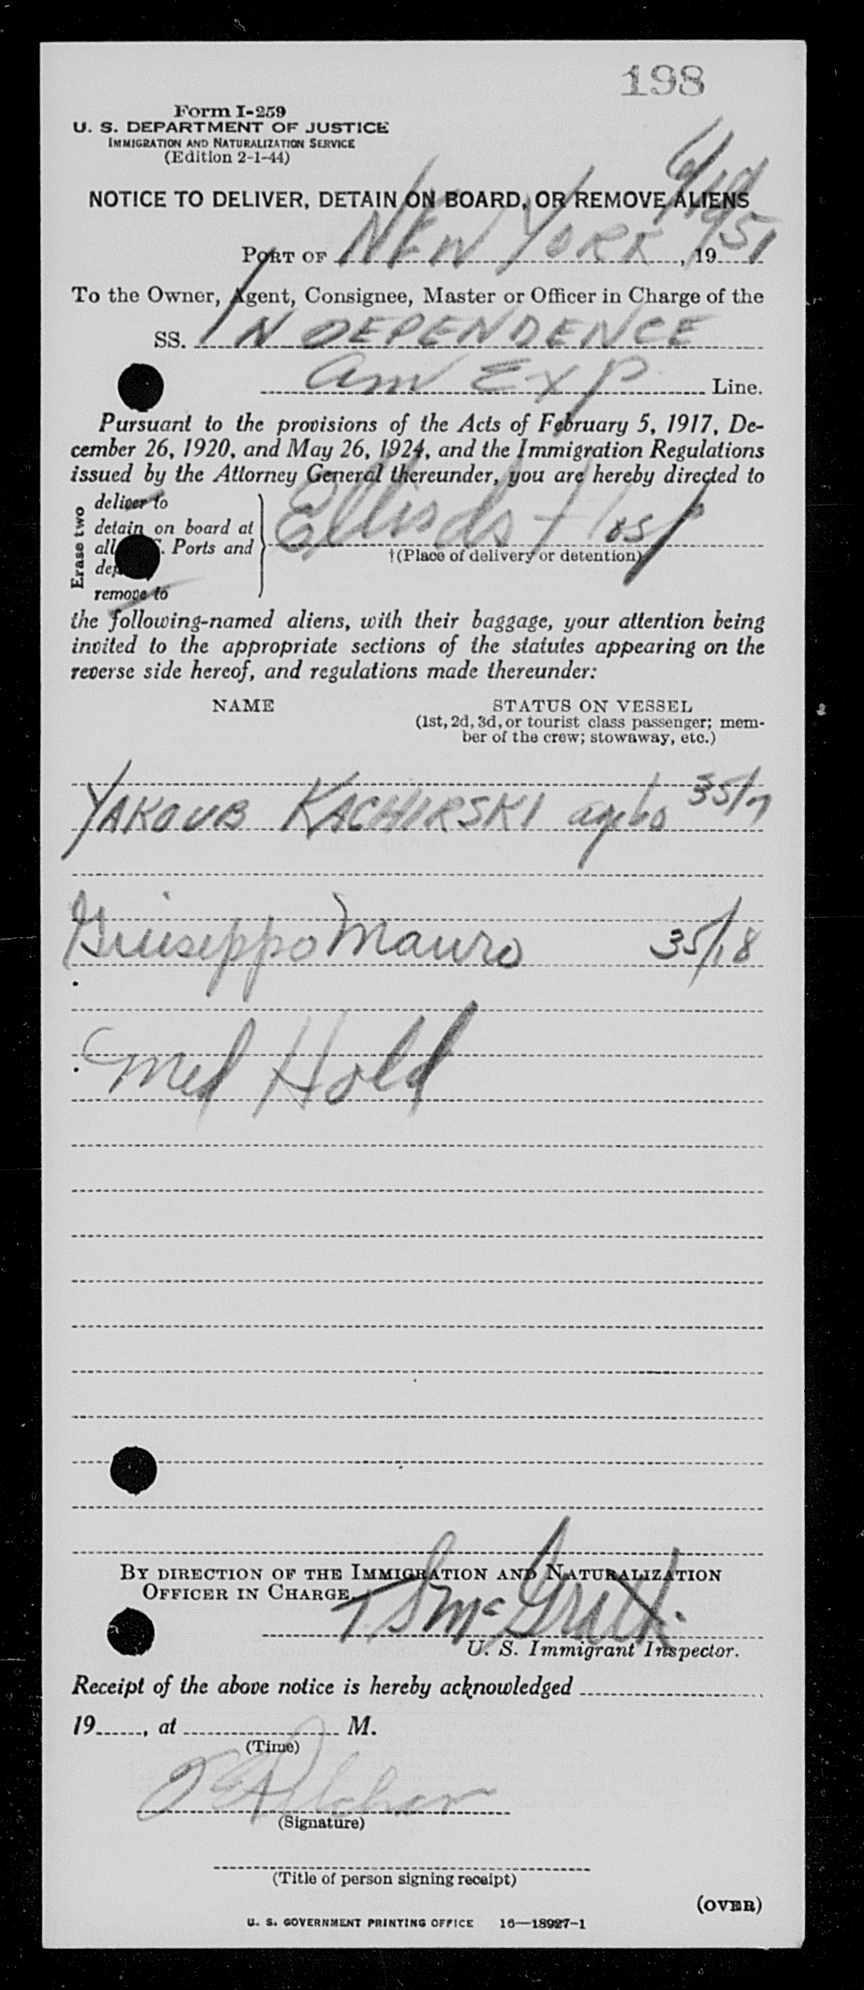 198
Form I-259
U. S. DEPARTMENT OF JUSTICE
IMMIGRATION AND NATURALIZATION SERVICE
(Edition 2-1-44)
NOTICE TO DELIVER, DETAIN ON BOARD, OR REMOVE ALIENS
PORT OF NEW YORK, 1951
To the Owner, Agent, Consignee, Master or Officer in Charge of the
SS. INDEPENDENCE
Am Exp Line.
Pursuant to the provisions of the Acts of February 5, 1917, De-
cember 26, 1920, and May 26, 1924, and the Immigration Regulations
issued by the Attorney General thereunder, you are hereby directed to
Erase two
deliver to
detain on board at
all Ports and
remove to
Ellis Is Hosp
†(Place of delivery or detention)
the following-named aliens, with their baggage, your attention being
invited to the appropriate sections of the statutes appearing on the
reverse side hereof, and regulations made thereunder:
NAME STATUS ON VESSEL
(1st, 2d, 3d, or tourist class passenger; mem-
ber of the crew; stowaway, etc.)
YAKOUB KACHIRSKI age 60 35/7
Giuseppo Mauro 35/18
Med Hold
BY DIRECTION OF THE IMMIGRATION AND NATURALIZATION
OFFICER IN CHARGE.
McGrath
U. S. Immigrant Inspector.
Receipt of the above notice is hereby acknowledged
19......, at M.
(Time)
(Signature)
(Title of person signing receipt)
(OVER)
U. S. GOVERNMENT PRINTING OFFICE 16—18927-1